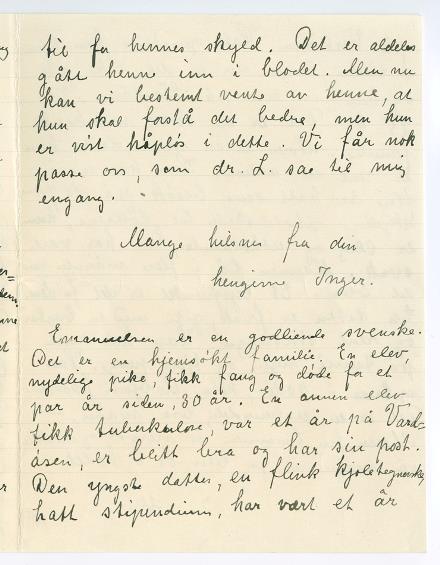 til for hennes skyld. Det er aldeles
gått henne inn i blodet. Men nu
kan vi bestemt vente av henne, at
hun skal forstå det bedre, men hun
er visst håpløs i dette. Vi får nok
passe oss, som dr. L. sae til mig
engang.
Mange hilsner fra din
hengivne Inger.
Emanuelsen er en godliende svenske.
Det er en hjemsøkt familie. En elev,
nydelige pike, fikk fang og døde for et
par år siden, 30 år. En annen elev
fikk tuberkulose, var et år på Vard-
åsen, er blitt bra og har sin post.
Den yngste datter, en flink kjoletegnerske,
hatt stipendium, har vært et år